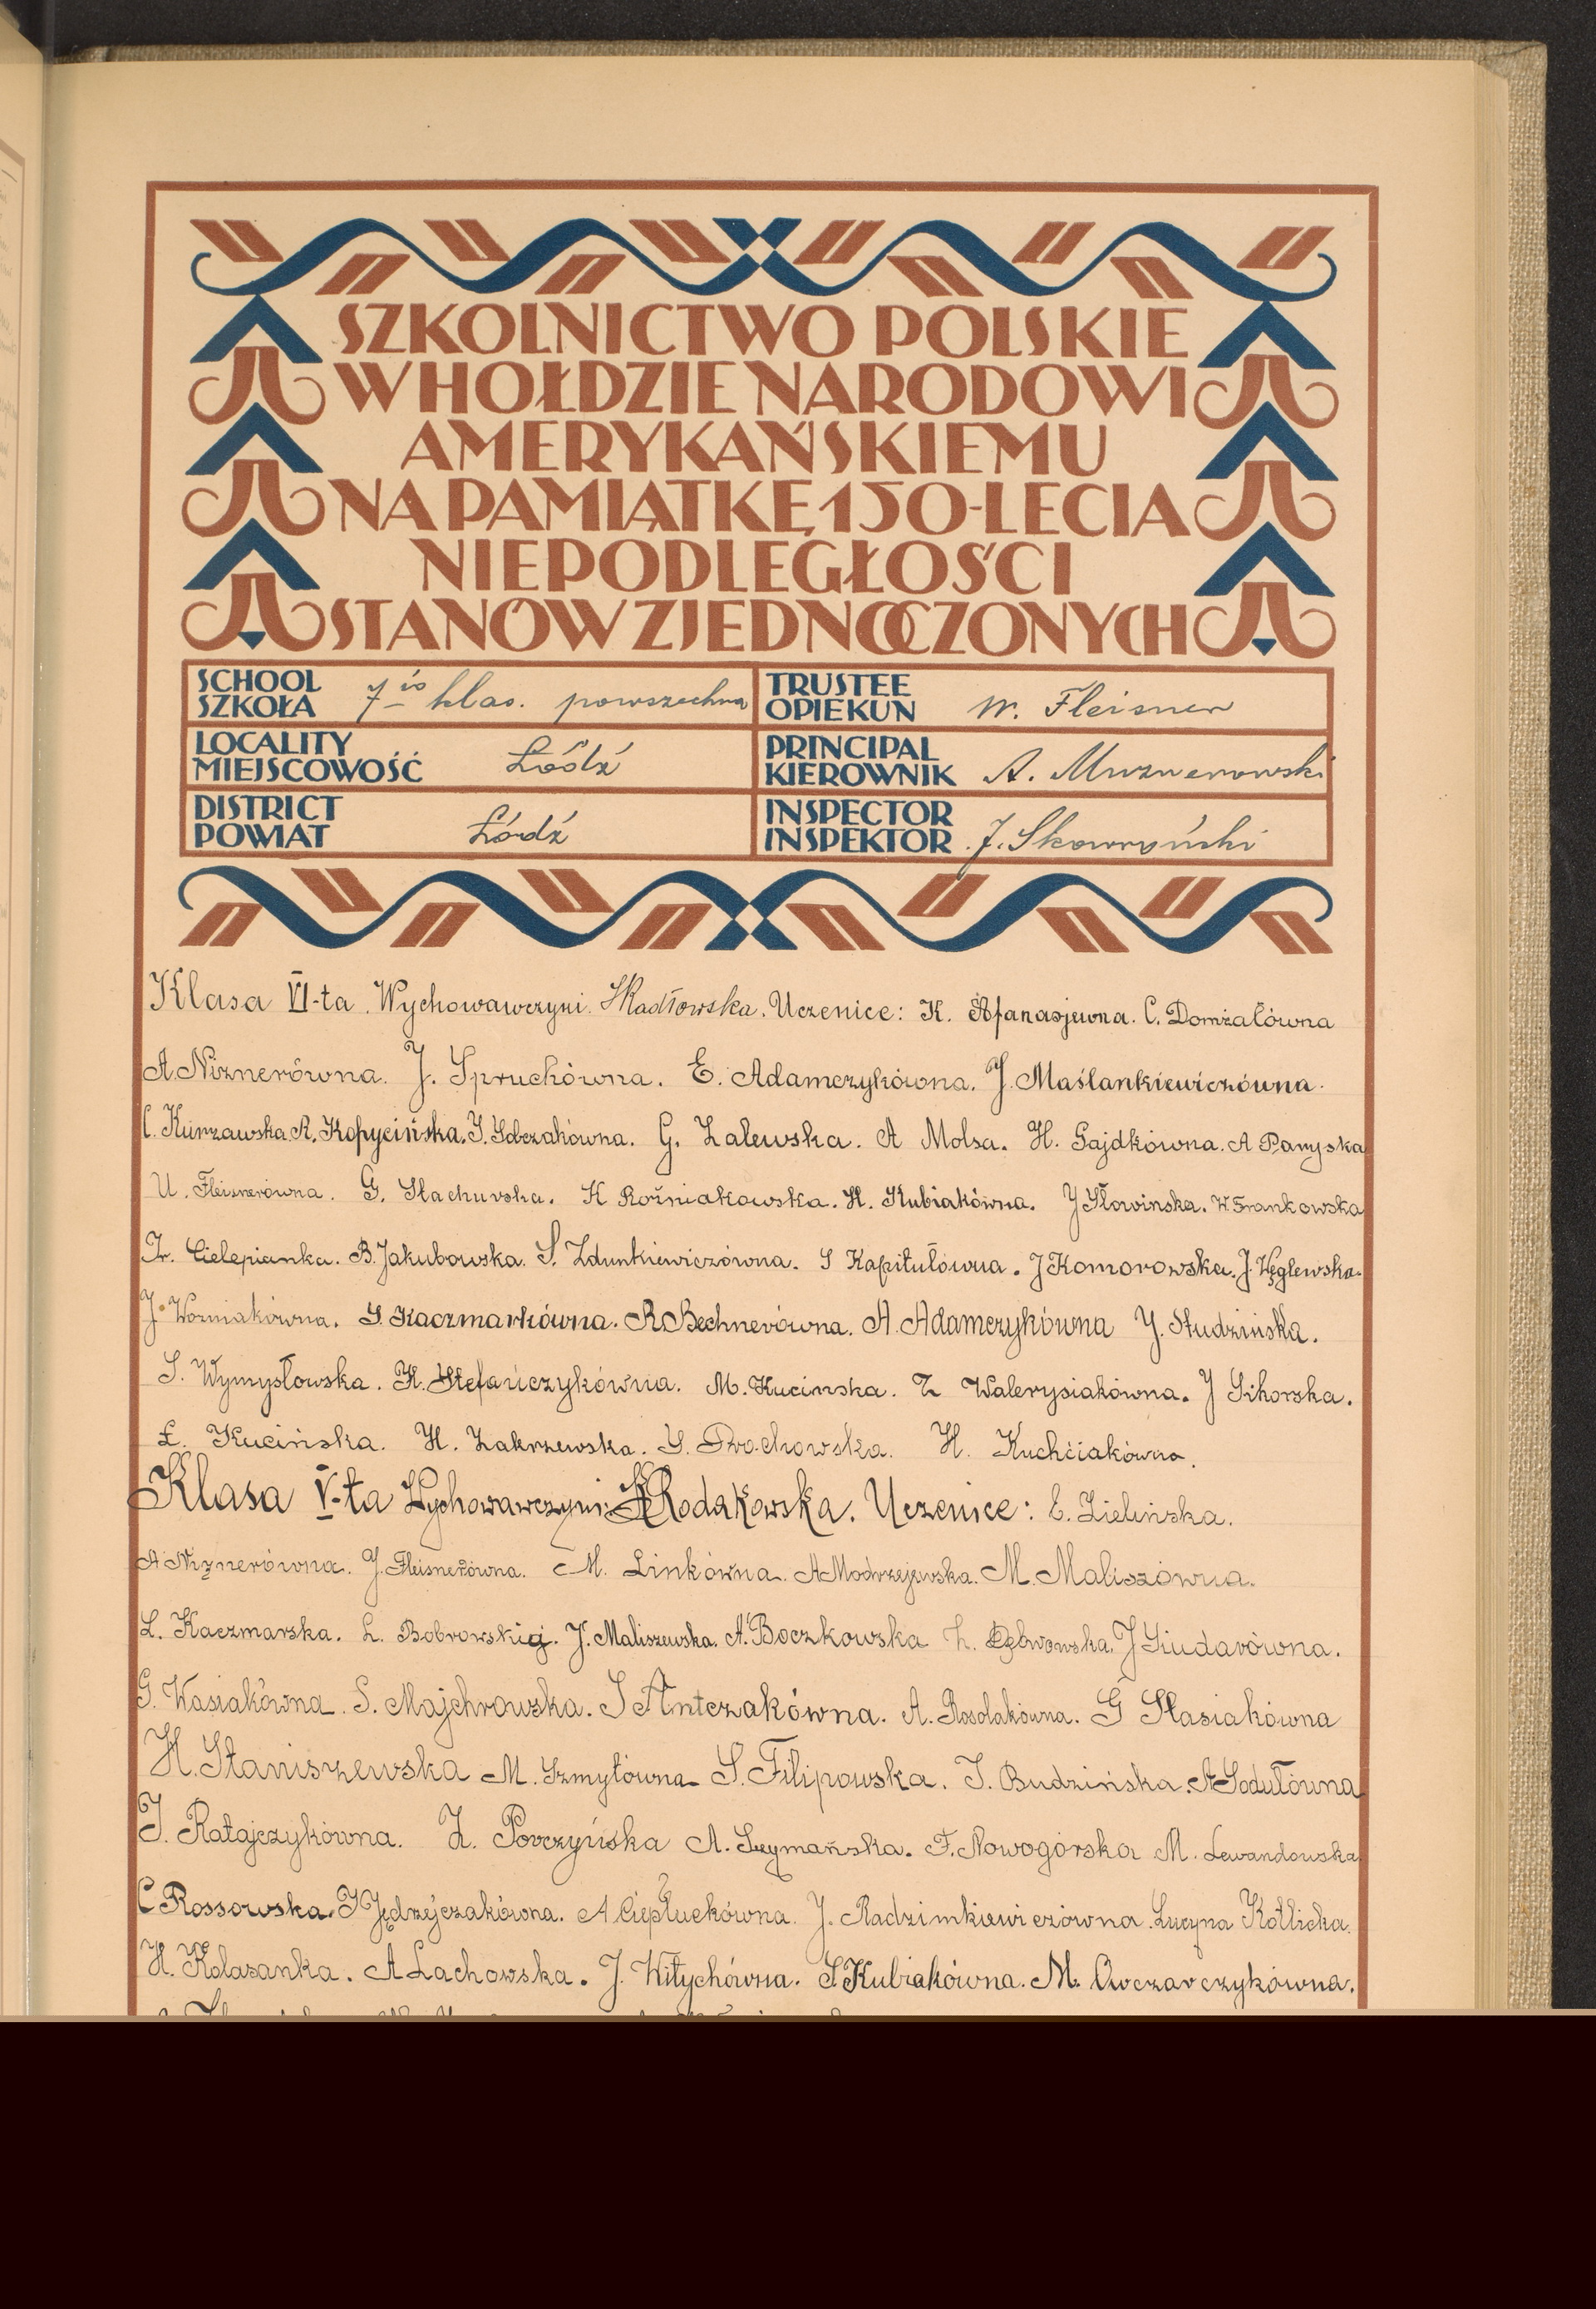 SZKOLNICTWO POLSKIE
W HOŁDZIE NARODOWI
AMERYKAŃSKIEMU
NA PAMIĄTKĘ 150-LECIA
NIEPODLEGŁOŚCI
STANÓW ZJEDNOCZONYCH
SCHOOL
SZKOŁA 7io klas. powszechna
TRUSTEE
OPIEKUN W. Fleisner
LOCALITY
MIEJSCOWOŚĆ Łódź
PRINCIPAL
KIEROWNIK A.
DISTRICT
POWIAT Łódź
INSPECTOR
INSPEKTOR J. Skowroński
Klasa VI-ta Wychowawczyni Uczenice: K. Afanasjewna. C. Domżałówna
A. Niznerówna. J. Spruchówna. E. Adamczykówna. J. Maślankiewiczówna.
C. Kurzawska. A. Kopycińska. G. Zalewska. A Molsa. H. Gajdkówna. A Paryska
U. Fleisnerówna. G. Stachurska. K Koźniakowska. H. Kubiakówna. J Słowinska. W. Frankowska
Cielepianka. B. Jakubowska. S. Zdunkiewiczówna. S Kapitułówna. J Komorowska. J. Węglewska.
J. Wozniakówna. S. Kaczmarkówna. R. Bechnerówna. A. Adamczykówna J. Studzińska.
S. Wymysłowska. K. Stefańczykówna. M. Kucinska. Z Walerysiakówna. J Sikorska.
Ł. Kucińska. H. Zakrzewska. S. Prochowska. H. Kuchciakówna.
Klasa V-ta Wychowawczyni: Rodakowska. Uczenice: E. Zielińska.
A Niznerówna. J. Fleisnerówna. M. Linkówna. A Modrzejewska. M. Maliszówna.
L. Kaczmarska. L. J. Maliszewska. A. Boczkowska J Siudarówna.
G. Wasiakówna. S. Majchrowska. S Antczakówna. A. Rosolakówna. G Stasiakówna
H. Staniszewska M. Szmytówna S. Filipowska. J. Budzińska. A Sodułówna
J. Ratajczykówna. Z. Porczyńska A. F. Nowogórska M. Lewandowska
C Rossowska. Jędrzejczakówna. A Ciepłuchówna. J. Radzimkiewiczówna. Lucyna Kotlicka.
H. Kolasanka. A Lachowska. J. Witychówna. S Kubiakówna. M. Owczarczykówna.